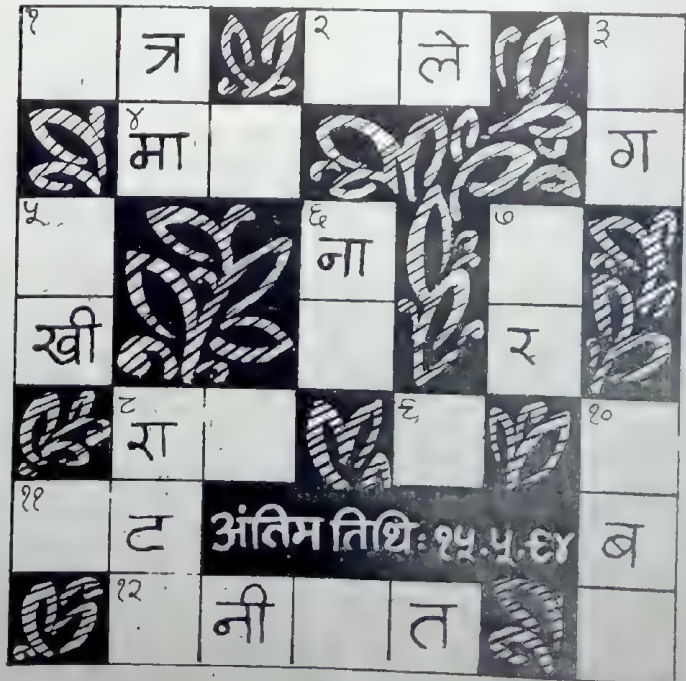 १ त्र २ ले ३
४ मा ग
५ ६ ना ७
खी र
८ रा ९ १०
११ ट अंतिम तिथि: १५.५.९४ ब
१२ नी त